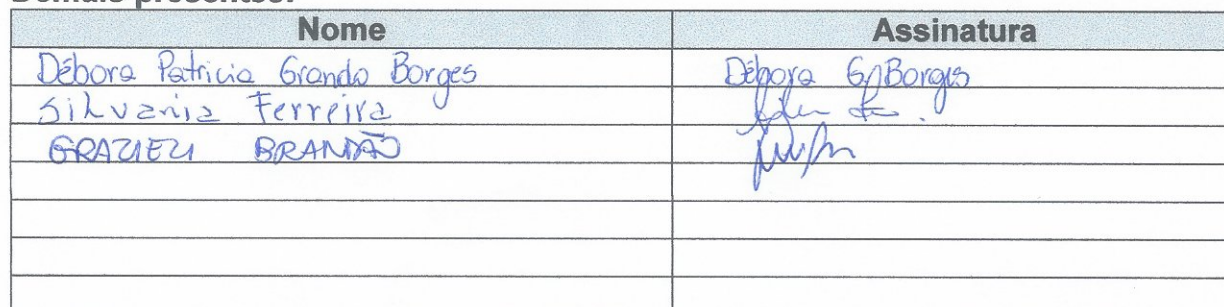 Demais presentes:
Nome Assinatura
Débora Patricia Grando Borges Débora G. Borges
Silvania Ferreira
GRAZIELI BRANDÃO